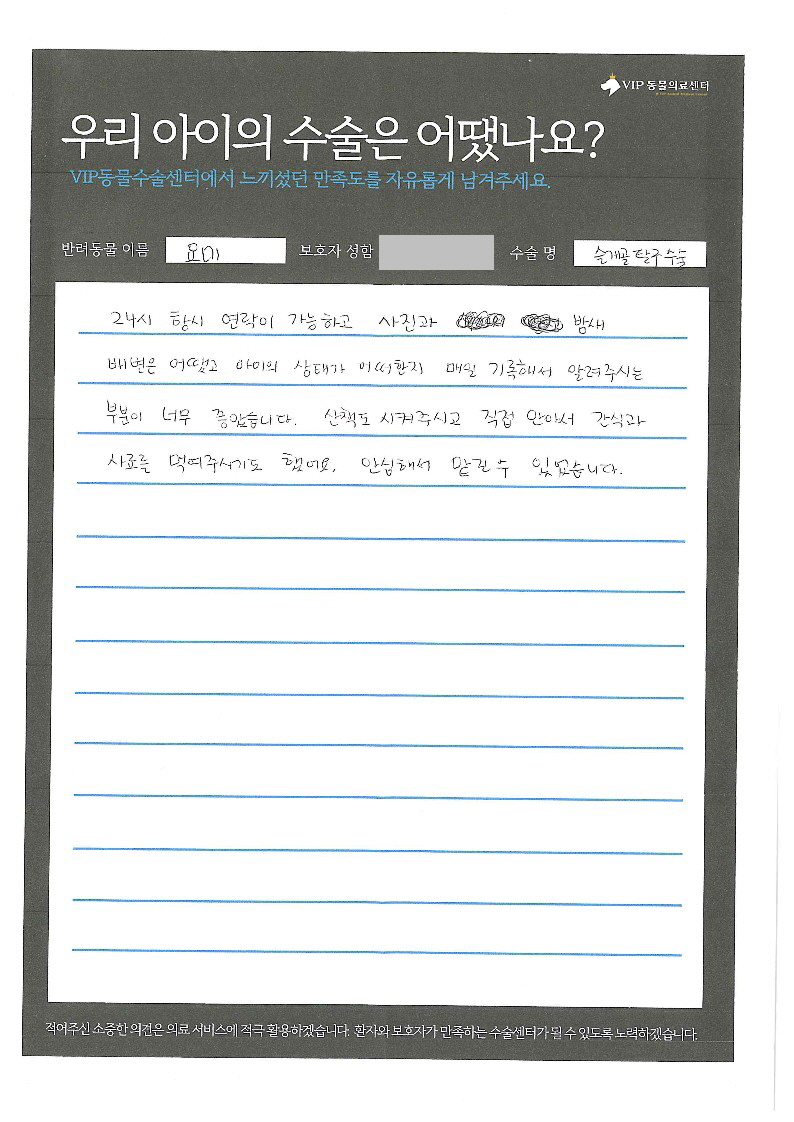 VIP 동물의료센터
우리 아이의 수술은 어땠나요?
VIP동물수술센터에서 느끼셨던 만족도를 자유롭게 남겨주세요.
반려동물 이름 요미 보호자 성함 수술 명 슬개골 탈구 수술
24시 항시 연락이 가능하고 사진과 밤새
배변은 어땠고 아이의 상태가 어떠한지 매일 기록해서 알려주시는
부분이 너무 좋았습니다. 산책도 시켜주시고 직접 안아서 간식과
사료를 먹여주시기도 했어요. 안심해서 맡길 수 있었습니다.
적어주신 소중한 의견은 의료 서비스에 적극 활용하겠습니다. 환자와 보호자가 만족하는 수술센터가 될 수 있도록 노력하겠습니다.